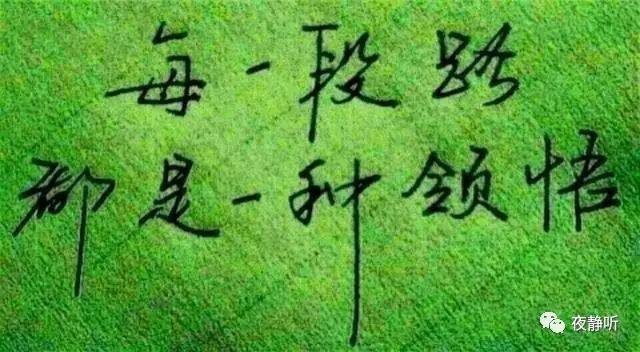 每一段路
都是一种领悟
夜静听